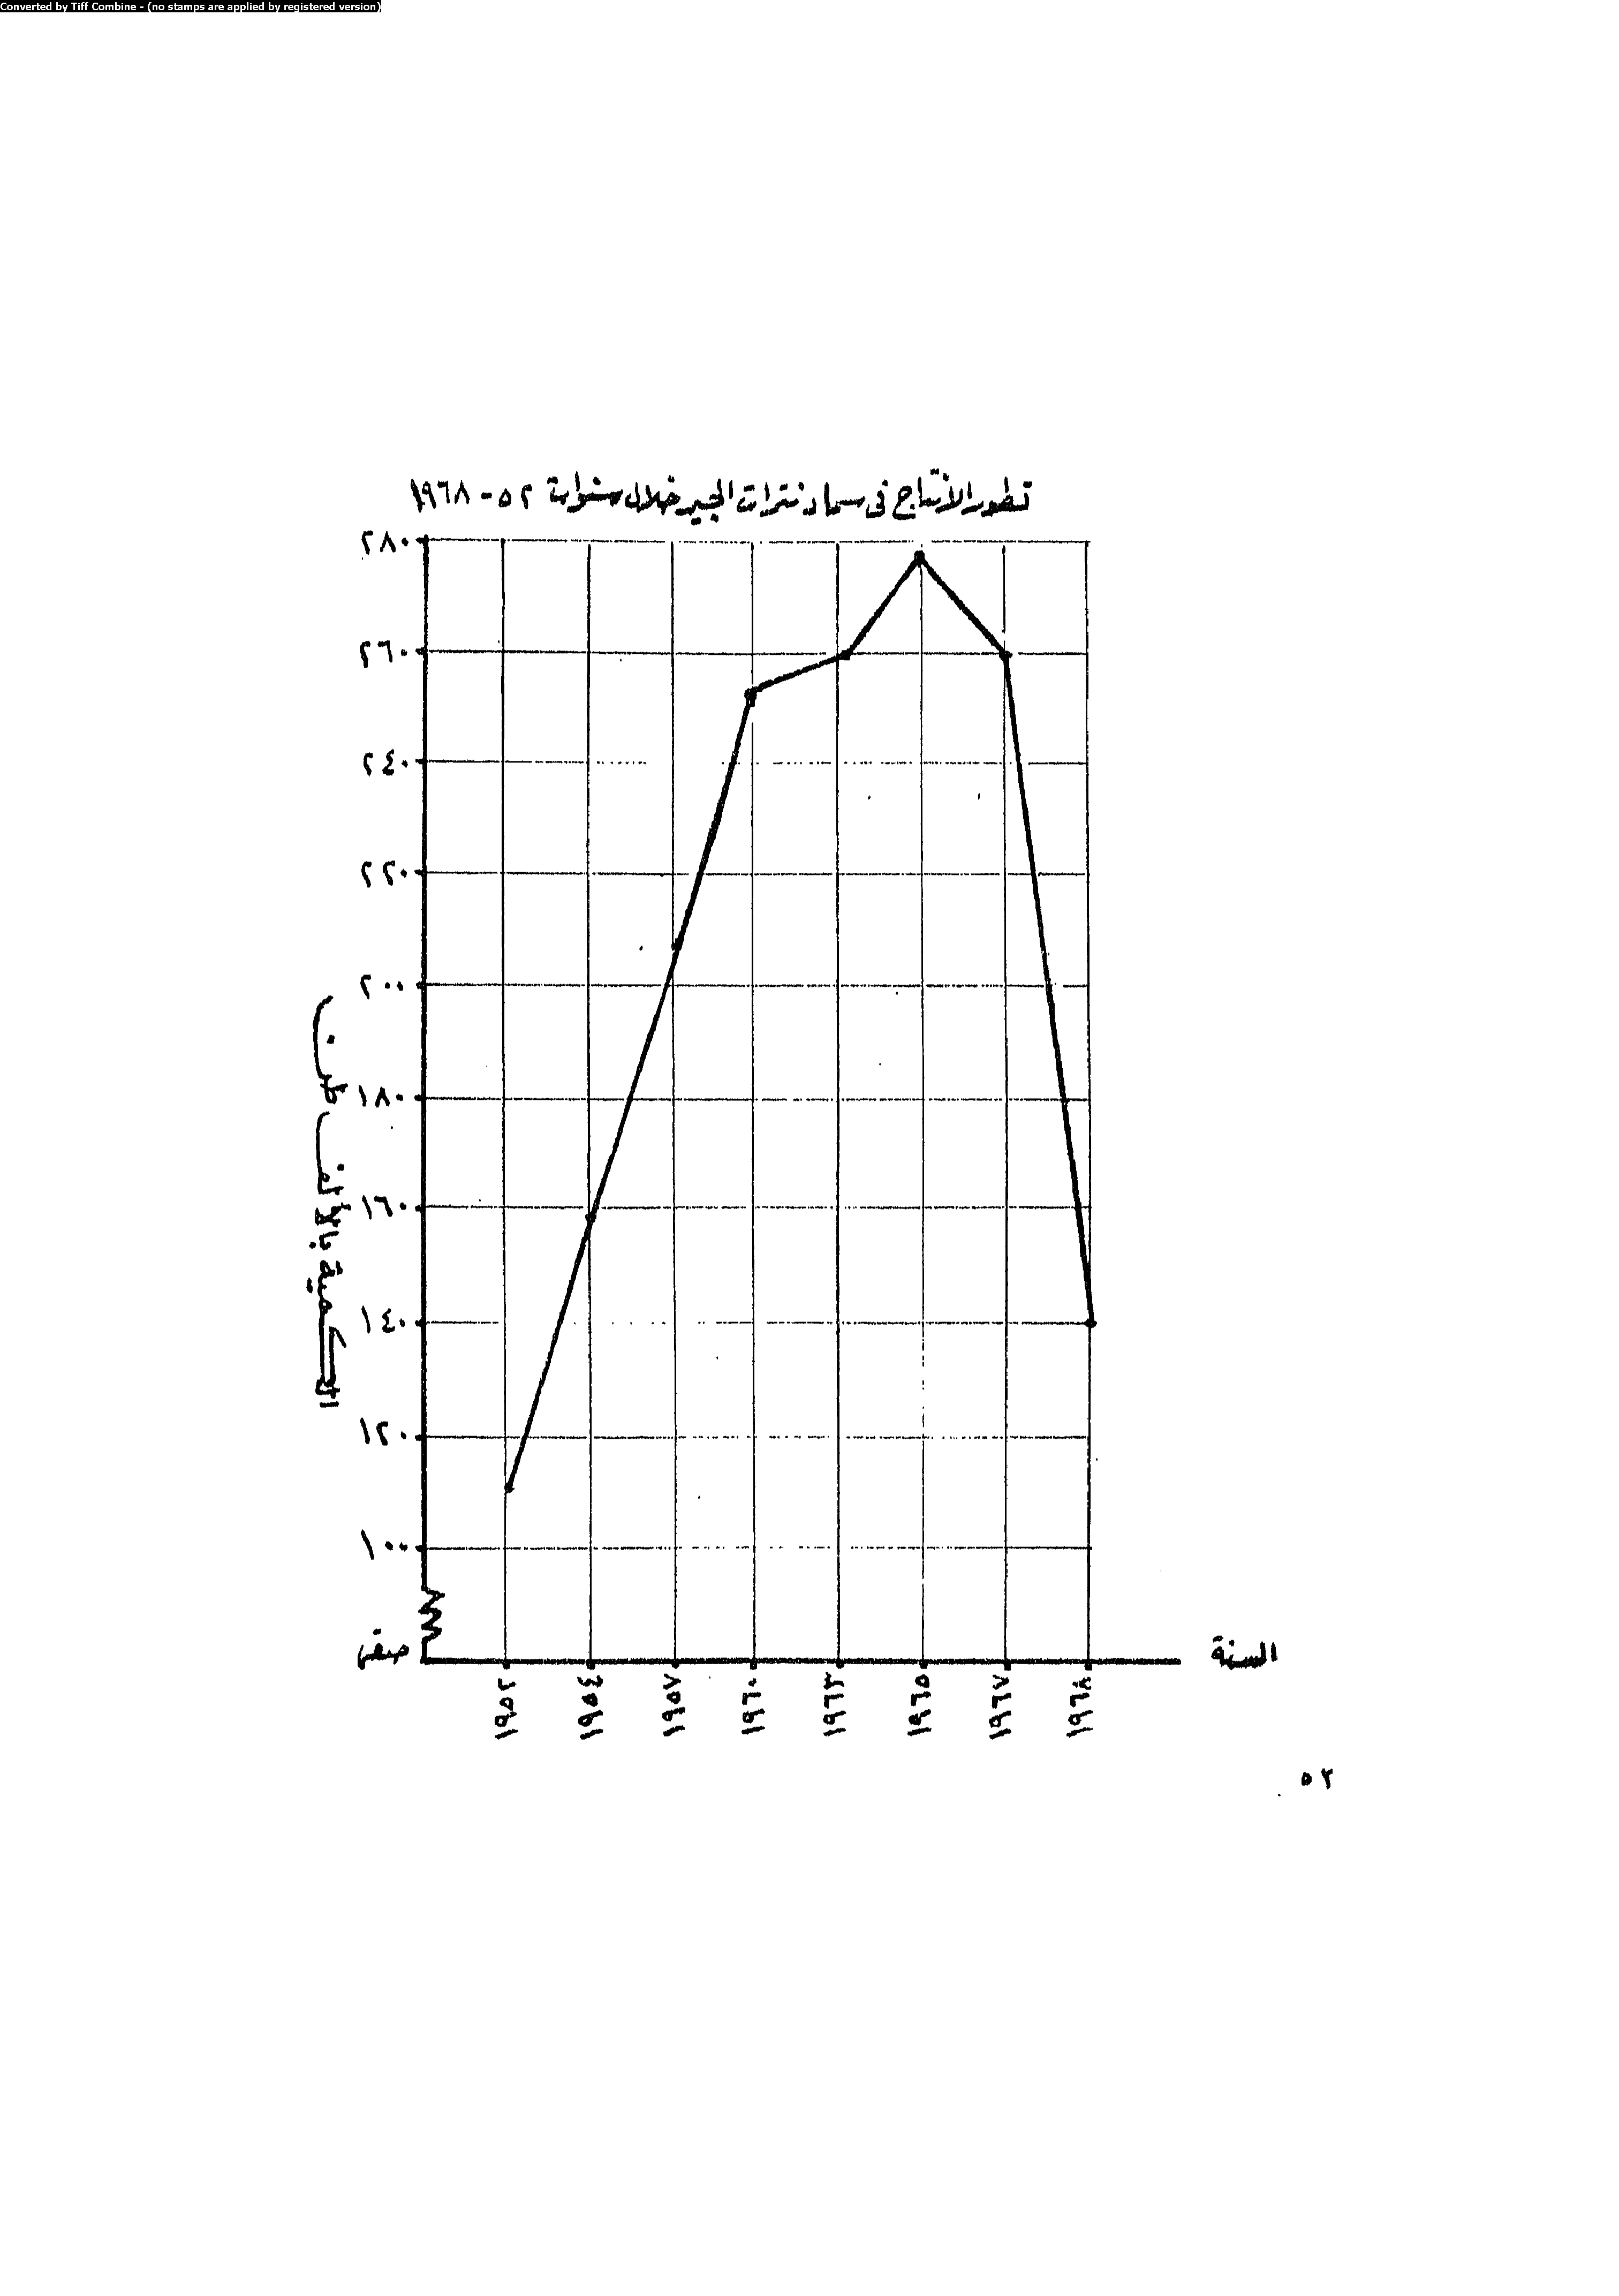 Converted by Tiff Combine - (no stamps are applied by registered version)
تطور الأنتاج فى سماد نترات الجير خلال سنوات ٥٢ - ١٩٦٨
٢٨٠
٢٦٠
٢٤٠
٢٢٠
٢٠٠
١٨٠
١٦٠
١٤٠
١٢٠
١٠٠
صفر
الكمية بالألف طن
١٩٥٢
١٩٥٤
١٩٥٧
١٩٦٠
١٩٦٣
١٩٦٥
١٩٦٧
١٩٦٨
السنة
٥٢